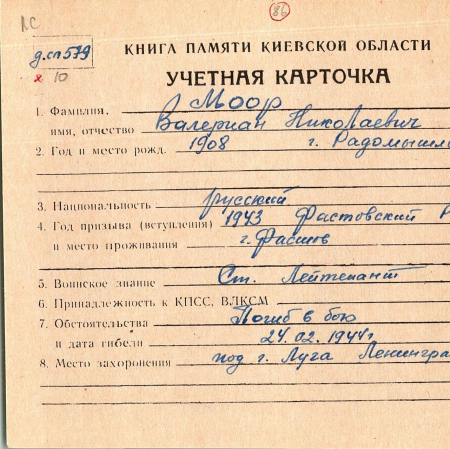 ЛС
86
д.сп 579
10
КНИГА ПАМЯТИ КИЕВСКОЙ ОБЛАСТИ
УЧЕТНАЯ КАРТОЧКА
1. Фамилия, Моор
имя, отчество Валериан Николаевич
2. Год и место рожд. 1908 г. Радомышл
3. Национальность русский
4. Год призыва (вступления) 1943 Фастовский Р
и место проживания г. Фастов
5. Воинское звание Ст. Лейтенант
6. Принадлежность к КПСС, ВЛКСМ
7. Обстоятельства Погиб в бою
и дата гибели 24.02.1944г
8. Место захоронения под г. Луга Ленингра